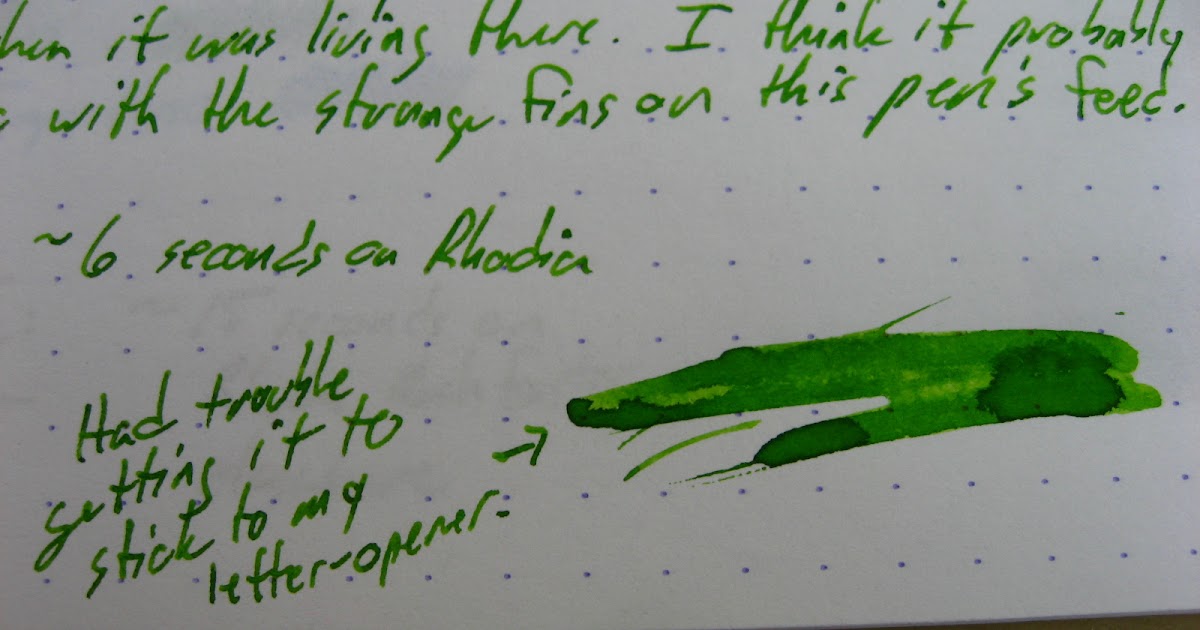 when it was living there. I think it probably
with the strange fins on this pen's feed.
~6 seconds on Rhodia
Had trouble
getting it to
stick to my
letter-opener.
→